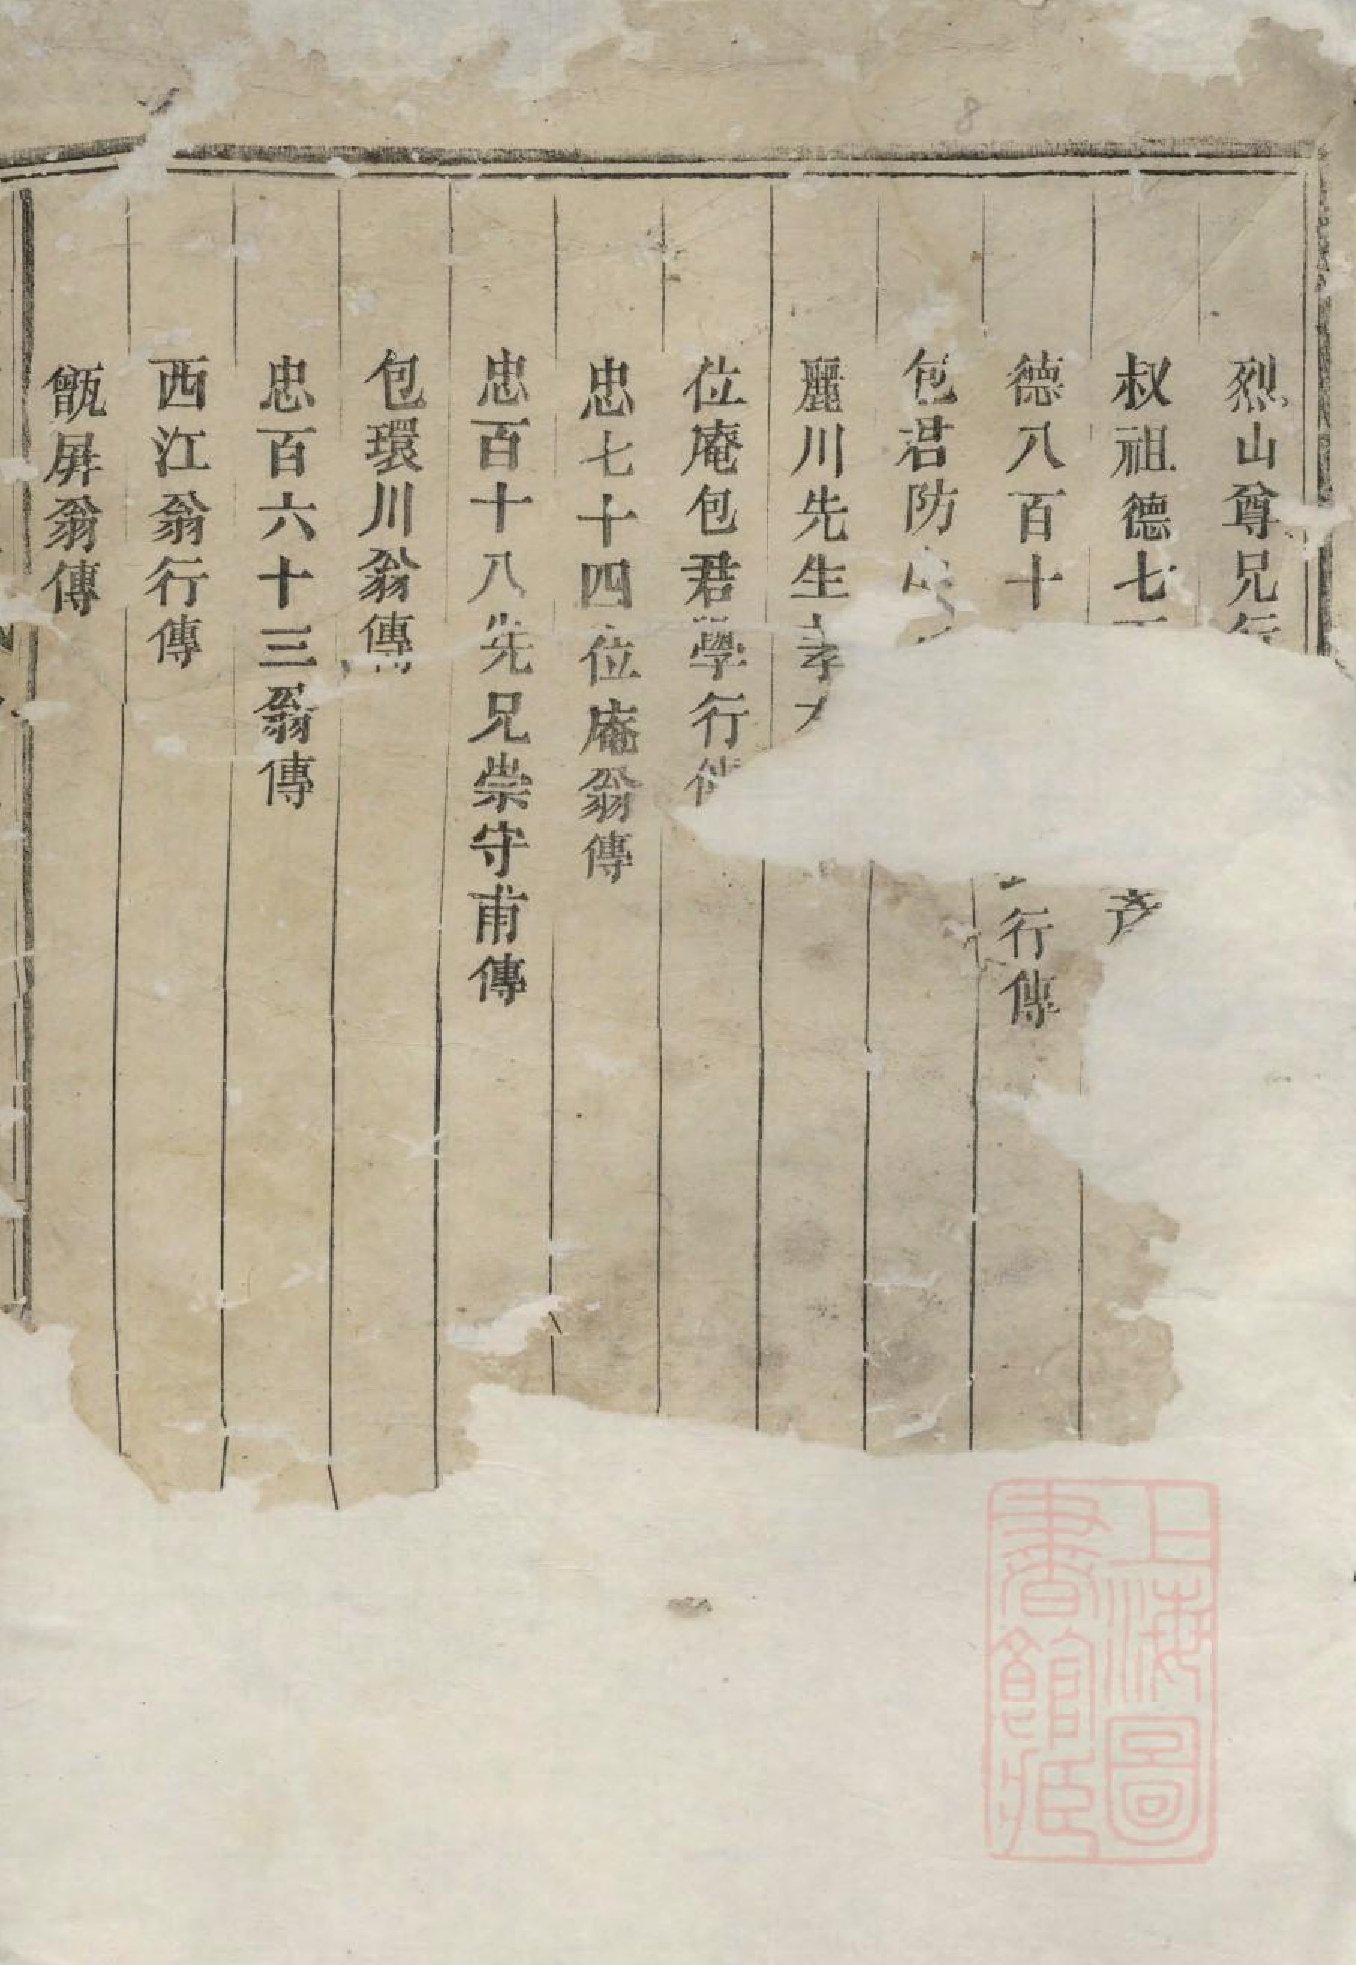 烈山尊兄行
叔祖德七
德八百十
行傳
包君防
麗川先生孝
位庵包君學行傳
忠七十四位庵翁傳
忠百十八先兄崇守甫傳
包環川翁傳
忠百六十三翁傳
西江翁行傳
甑屏翁傳
上海圖
書館藏